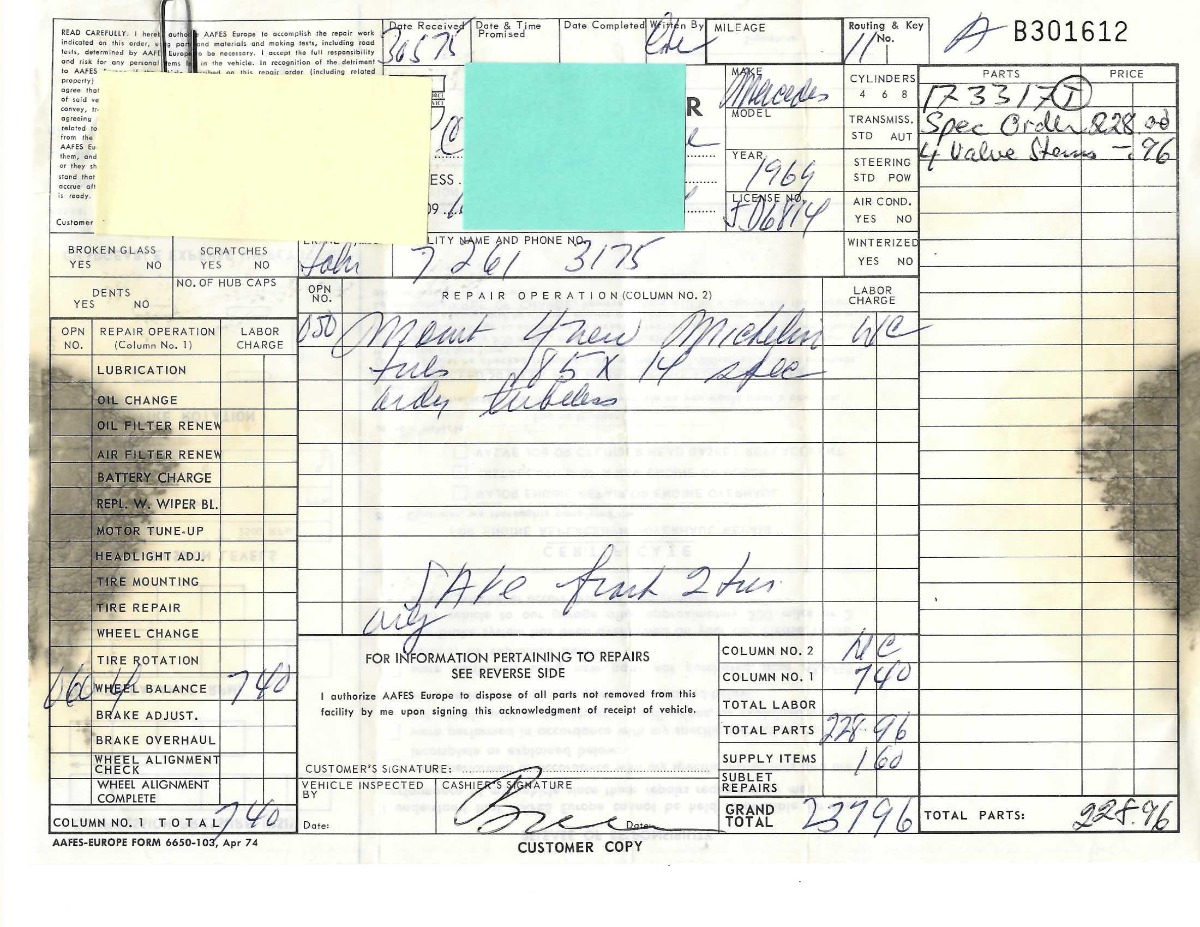 READ CAREFULLY. I hereby authorize AAFES Europe to accomplish the repair work
indicated on this order, using parts and materials and making tests, including road
tests, determined by AAFES Europe to be necessary. I accept the full responsibility
and risk for any personal items left in the vehicle. In recognition of the detriment
to AAFES on this repair order (including related
property)
agree that
of said ve
convey, tr
agreeing
related to
from the
AAFES Eu
them, and
or they sh
stand that
accrue aft
is ready.
Customer
Date Received
36575
Date & Time Promised
Date Completed
Written By
MILEAGE
Routing & Key No.
11
A B301612
R
ESS
09
MAKE
Mercedes
MODEL
YEAR
1969
LICENSE NO.
CYLINDERS
4 6 8
TRANSMISS.
STD AUT
STEERING
STD POW
AIR COND.
YES NO
WINTERIZED
YES NO
PARTS PRICE
173317 T
Spec Order 228.00
4 Valve Stems - .96
BROKEN GLASS
YES NO
SCRATCHES
YES NO
DENTS
YES NO
NO. OF HUB CAPS
ILITY NAME AND PHONE NO.
7261 3175
OPN NO.
REPAIR OPERATION (COLUMN NO. 2)
LABOR CHARGE
050 Mount 4 new Michelin N/C
tires 185 X 14 spec
order tubeless
SAVE front 2 tires
only
OPN NO.
REPAIR OPERATION
(Column No. 1)
LABOR CHARGE
LUBRICATION
OIL CHANGE
OIL FILTER RENEW
AIR FILTER RENEW
BATTERY CHARGE
REPL. W. WIPER BL.
MOTOR TUNE-UP
HEADLIGHT ADJ.
TIRE MOUNTING
TIRE REPAIR
WHEEL CHANGE
TIRE ROTATION
060 4 WHEEL BALANCE 7 40
BRAKE ADJUST.
BRAKE OVERHAUL
WHEEL ALIGNMENT CHECK
WHEEL ALIGNMENT COMPLETE
COLUMN NO. 1 TOTAL 7 40
FOR INFORMATION PERTAINING TO REPAIRS
SEE REVERSE SIDE
I authorize AAFES Europe to dispose of all parts not removed from this
facility by me upon signing this acknowledgment of receipt of vehicle.
CUSTOMER'S SIGNATURE:
VEHICLE INSPECTED BY
Date:
CASHIER'S SIGNATURE
Date
COLUMN NO. 2 N C
COLUMN NO. 1 7 40
TOTAL LABOR
TOTAL PARTS 228.96
SUPPLY ITEMS 1 60
SUBLET REPAIRS
GRAND TOTAL 237 96
TOTAL PARTS: 228.96
AAFES-EUROPE FORM 6650-103, Apr 74
CUSTOMER COPY